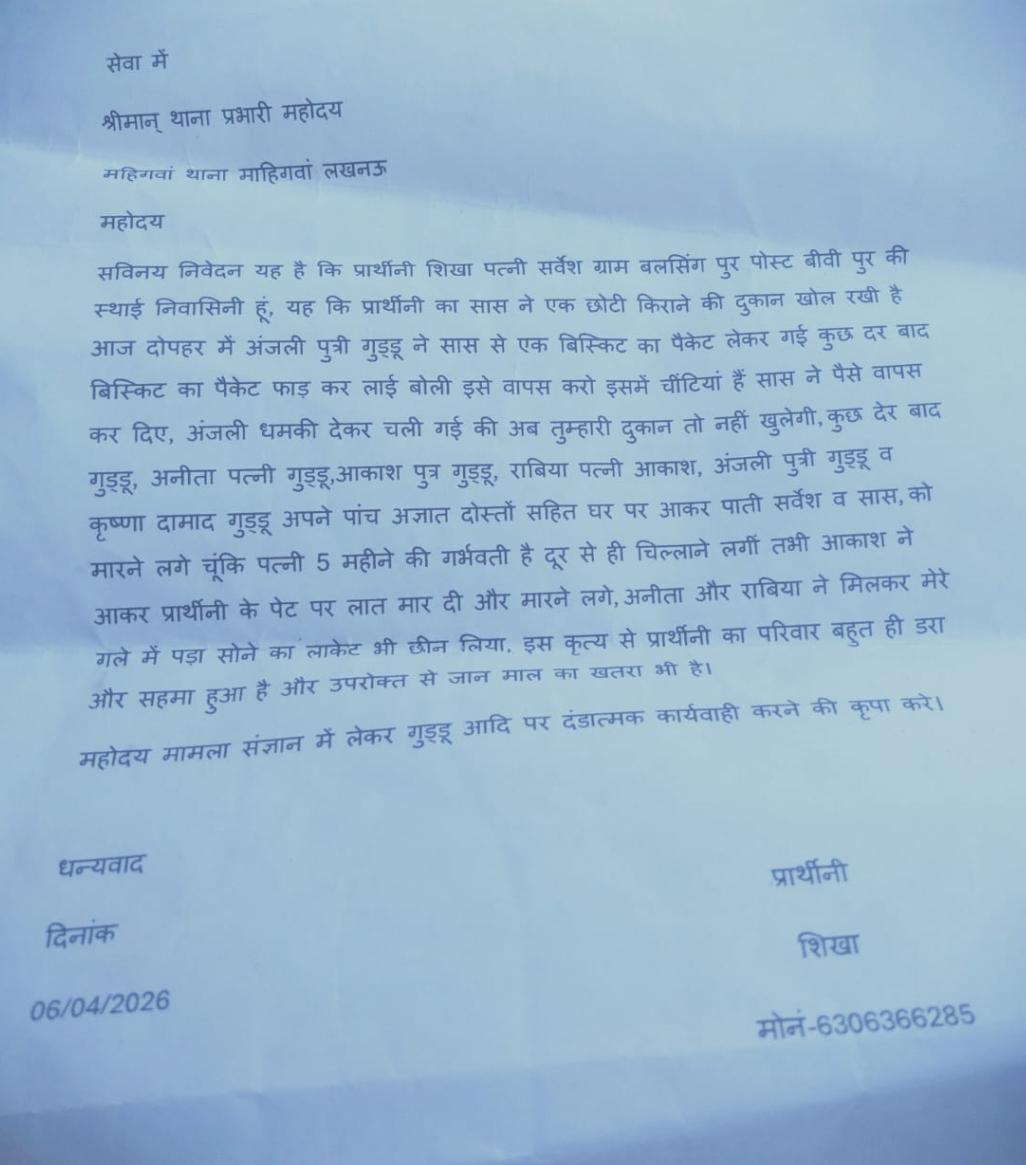 सेवा में
श्रीमान् थाना प्रभारी महोदय
महिगवां थाना माहिगवां लखनऊ
महोदय
सविनय निवेदन यह है कि प्रार्थीनी शिखा पत्नी सर्वेश ग्राम बलसिंग पुर पोस्ट बीवी पुर की
स्थाई निवासिनी हूं, यह कि प्रार्थीनी का सास ने एक छोटी किराने की दुकान खोल रखी है
आज दोपहर में अंजली पुत्री गुड्डू ने सास से एक बिस्किट का पैकेट लेकर गई कुछ दर बाद
बिस्किट का पैकेट फाड़ कर लाई बोली इसे वापस करो इसमें चींटियां हैं सास ने पैसे वापस
कर दिए, अंजली धमकी देकर चली गई की अब तुम्हारी दुकान तो नहीं खुलेगी, कुछ देर बाद
गुड्डू, अनीता पत्नी गुड्डू,आकाश पुत्र गुड्डू, राबिया पत्नी आकाश, अंजली पुत्री गुड्डू व
कृष्णा दामाद गुड्डू अपने पांच अज्ञात दोस्तों सहित घर पर आकर पाती सर्वेश व सास, को
मारने लगे चूंकि पत्नी 5 महीने की गर्भवती है दूर से ही चिल्लाने लगीं तभी आकाश ने
आकर प्रार्थीनी के पेट पर लात मार दी और मारने लगे, अनीता और राबिया ने मिलकर मेरे
गले में पड़ा सोने का लाकेट भी छीन लिया. इस कृत्य से प्रार्थीनी का परिवार बहुत ही डरा
और सहमा हुआ है और उपरोक्त से जान माल का खतरा भी है।
महोदय मामला संज्ञान में लेकर गुड्डू आदि पर दंडात्मक कार्यवाही करने की कृपा करे।
धन्यवाद
प्रार्थीनी
दिनांक
शिखा
06/04/2026
मोनं-6306366285